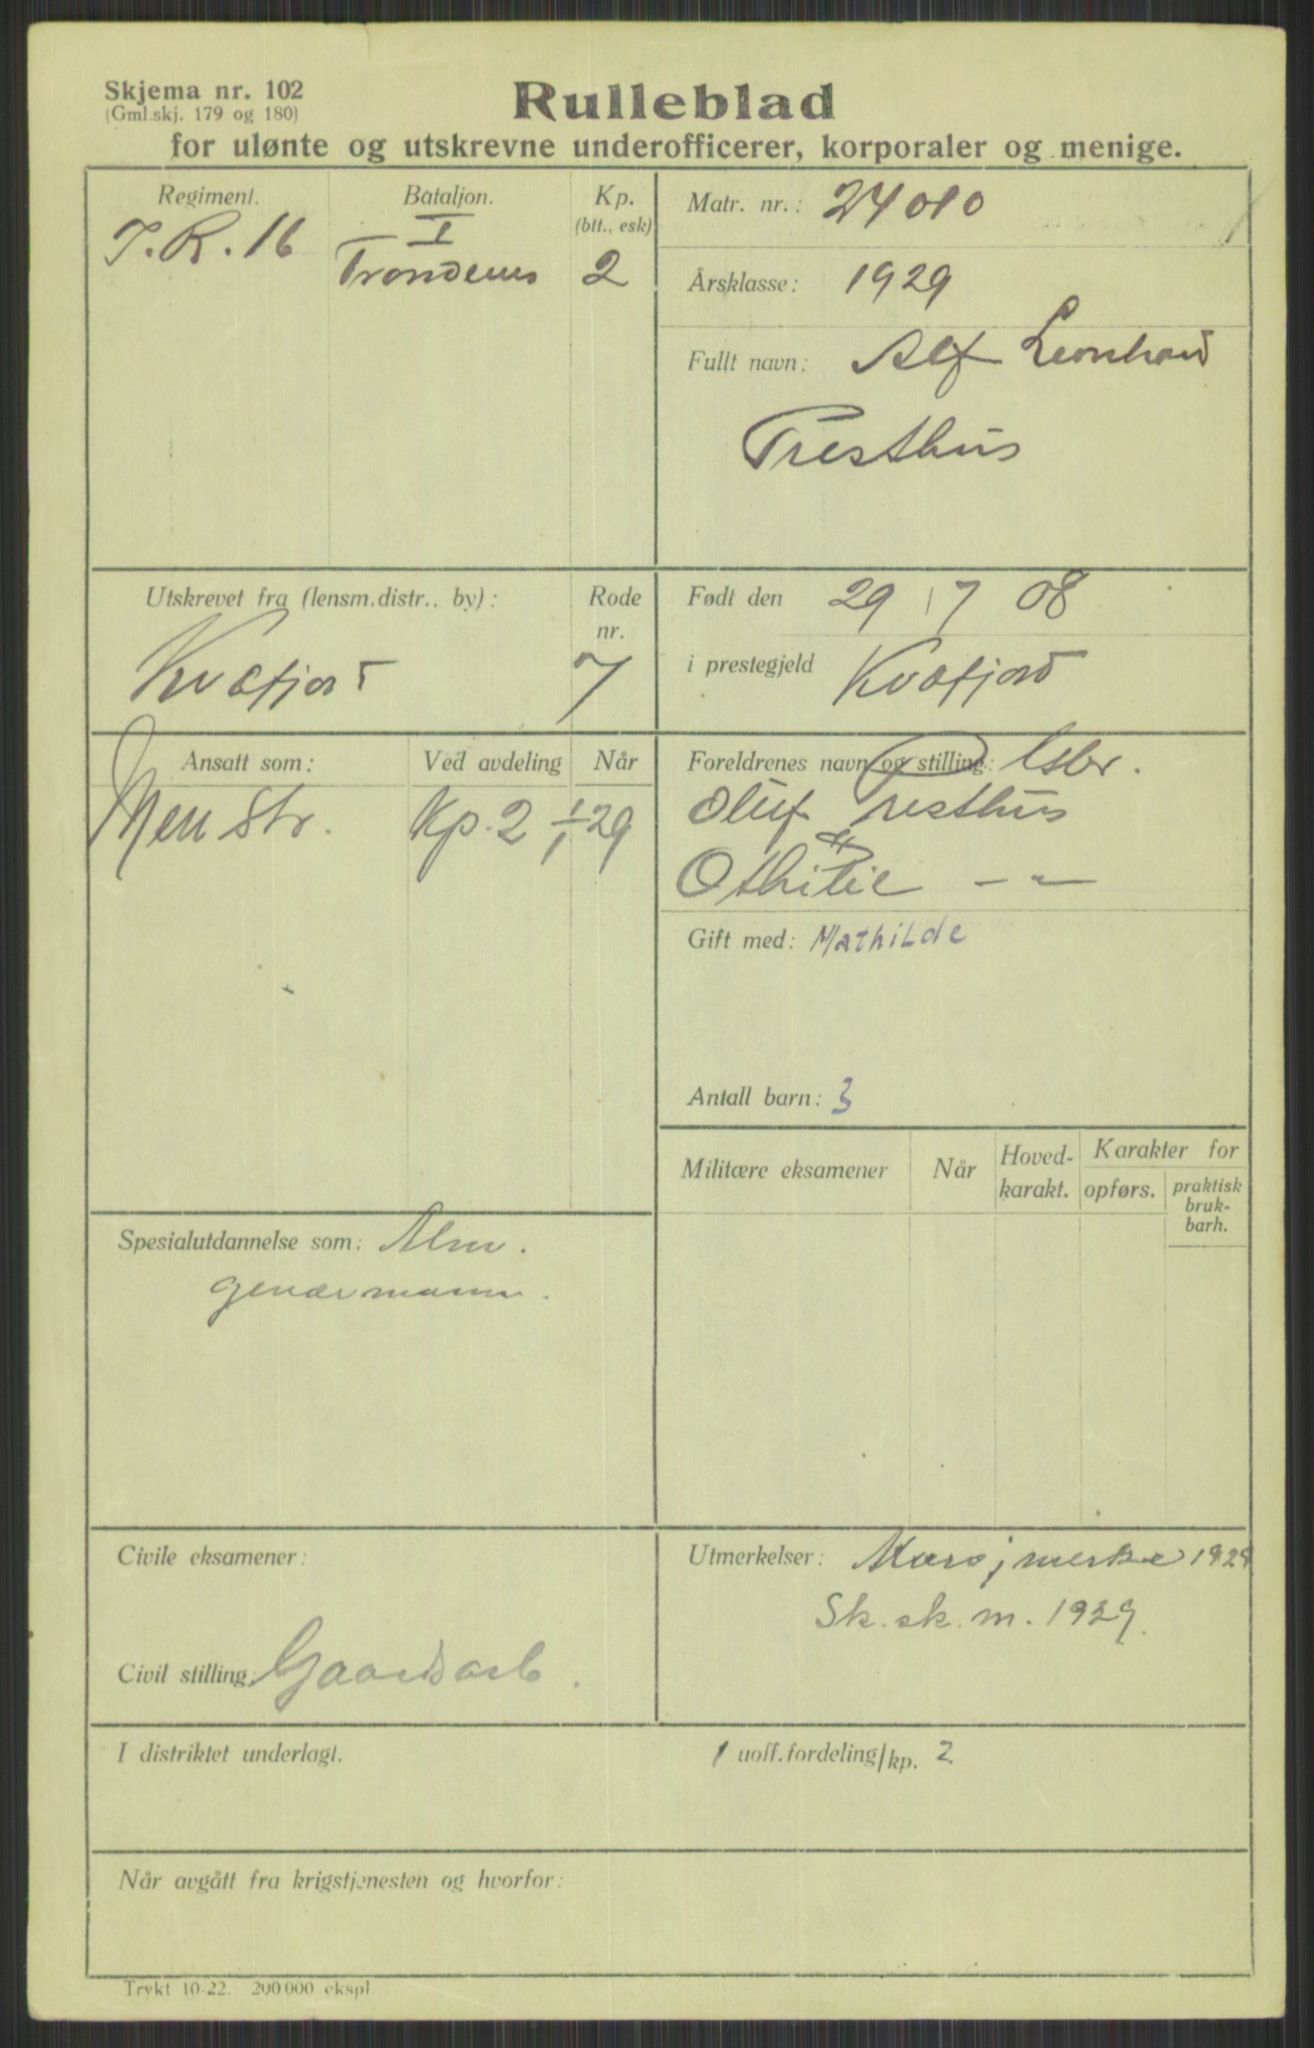 Skjema nr. 102
(Gml.skj. 179 og 180)
Rulleblad
for ulønte og utskrevne underofficerer, korporaler og menige.
Regiment. Bataljon. Kp.
(btt., esk)
J. R. 16 I
Trondenes 2
Matr. nr.: 24010
Årsklasse: 1929
Fullt navn: Alf Leonhard
Presthus
Utskrevet fra (lensm.distr., by): Rode
nr.
Kvæfjord 7
Født den 29/7 08
i prestegjeld Kvæfjord
Ansatt som: Ved avdeling Når
Men Str. Kp. 2 1/1 29
Foreldrenes navn og stilling: Gbr.
Oluf Presthus
Othilie — " —
Gift med: Mathilde
Antall barn: 3
Militære eksamener Når Hoved-
karakt. Karakter for
opførs. praktisk
bruk-
barh.
Spesialutdannelse som: Alm.
geværmann.
Civile eksamener:
Civil stilling: Gaardsarb.
Utmerkelser: merke 1929
Sk. sk. m. 1929.
I distriktet underlagt. 1 uoff.fordeling/kp. 2
Når avgått fra krigstjenesten og hvorfor:
Trykt 10-22. 200 000 ekspl.